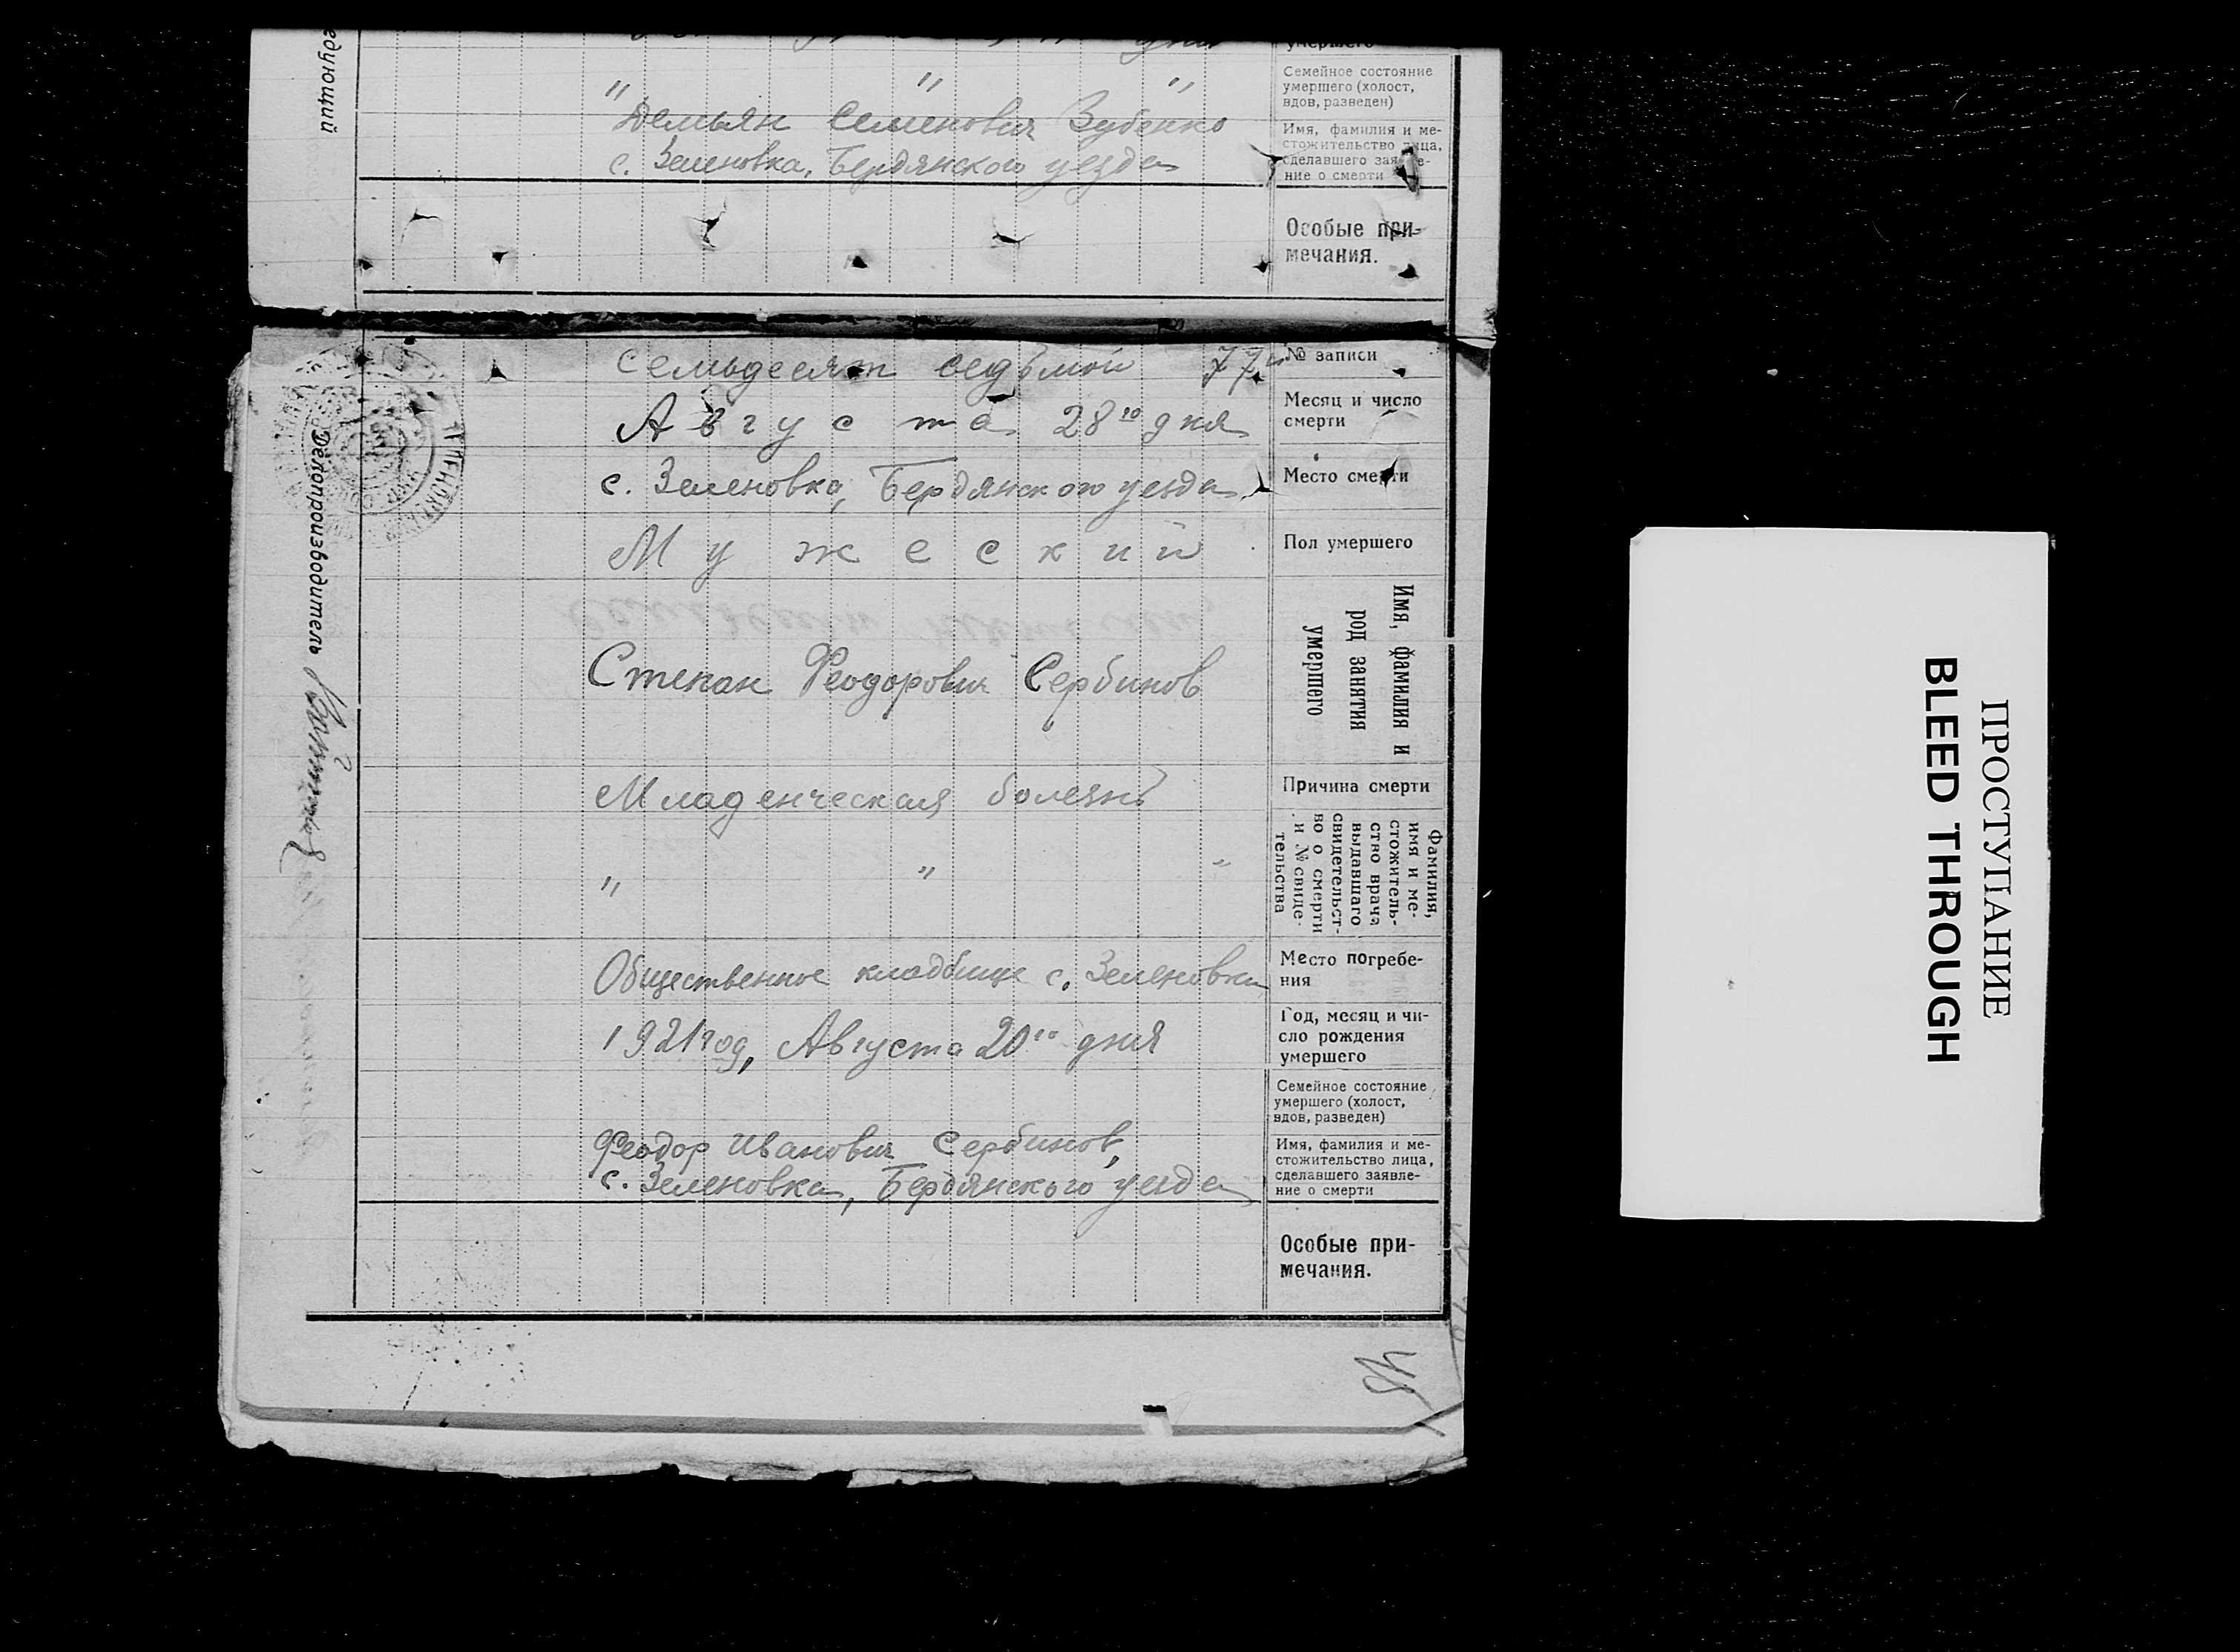 едующий
Семейное состояние
умершего (холост,
вдов, разведен)
" " "
Имя, фамилия и ме-
стожительство лица,
сделавшего заявле-
ние о смерти
Демьян Семенович Зубенко
с. Зеленовка, Бердянского уезда
Особые при-
мечания.
№ записи
Семьдесят седьмой 77й
Месяц и число
смерти
Августа 28го дня
Место смерти
с. Зеленовка, Бердянского уезда
Пол умершего
Мужеский
Имя, фамилия и
род занятия
умершего
Степан Феодорович Сербинов
Причина смерти
Младенческая болезнь
Фамилия,
имя и ме-
стожитель-
ство врача
выдавшаго
свидетельст-
во о смерти
и № свиде-
тельства
" " "
Место погребе-
ния
Общественное кладбище с. Зеленовка
Год, месяц и чи-
сло рождения
умершего
1921 год, Августа 20го дня
Семейное состояние
умершего (холост,
вдов, разведен)
Имя, фамилия и ме-
стожительство лица,
сделавшего заявле-
ние о смерти
Феодор Иванович Сербинов,
с. Зеленовка, Бердянского уезда
Особые при-
мечания.
Делопроизводитель
ПРОСТУПАНИЕ
BLEED THROUGH